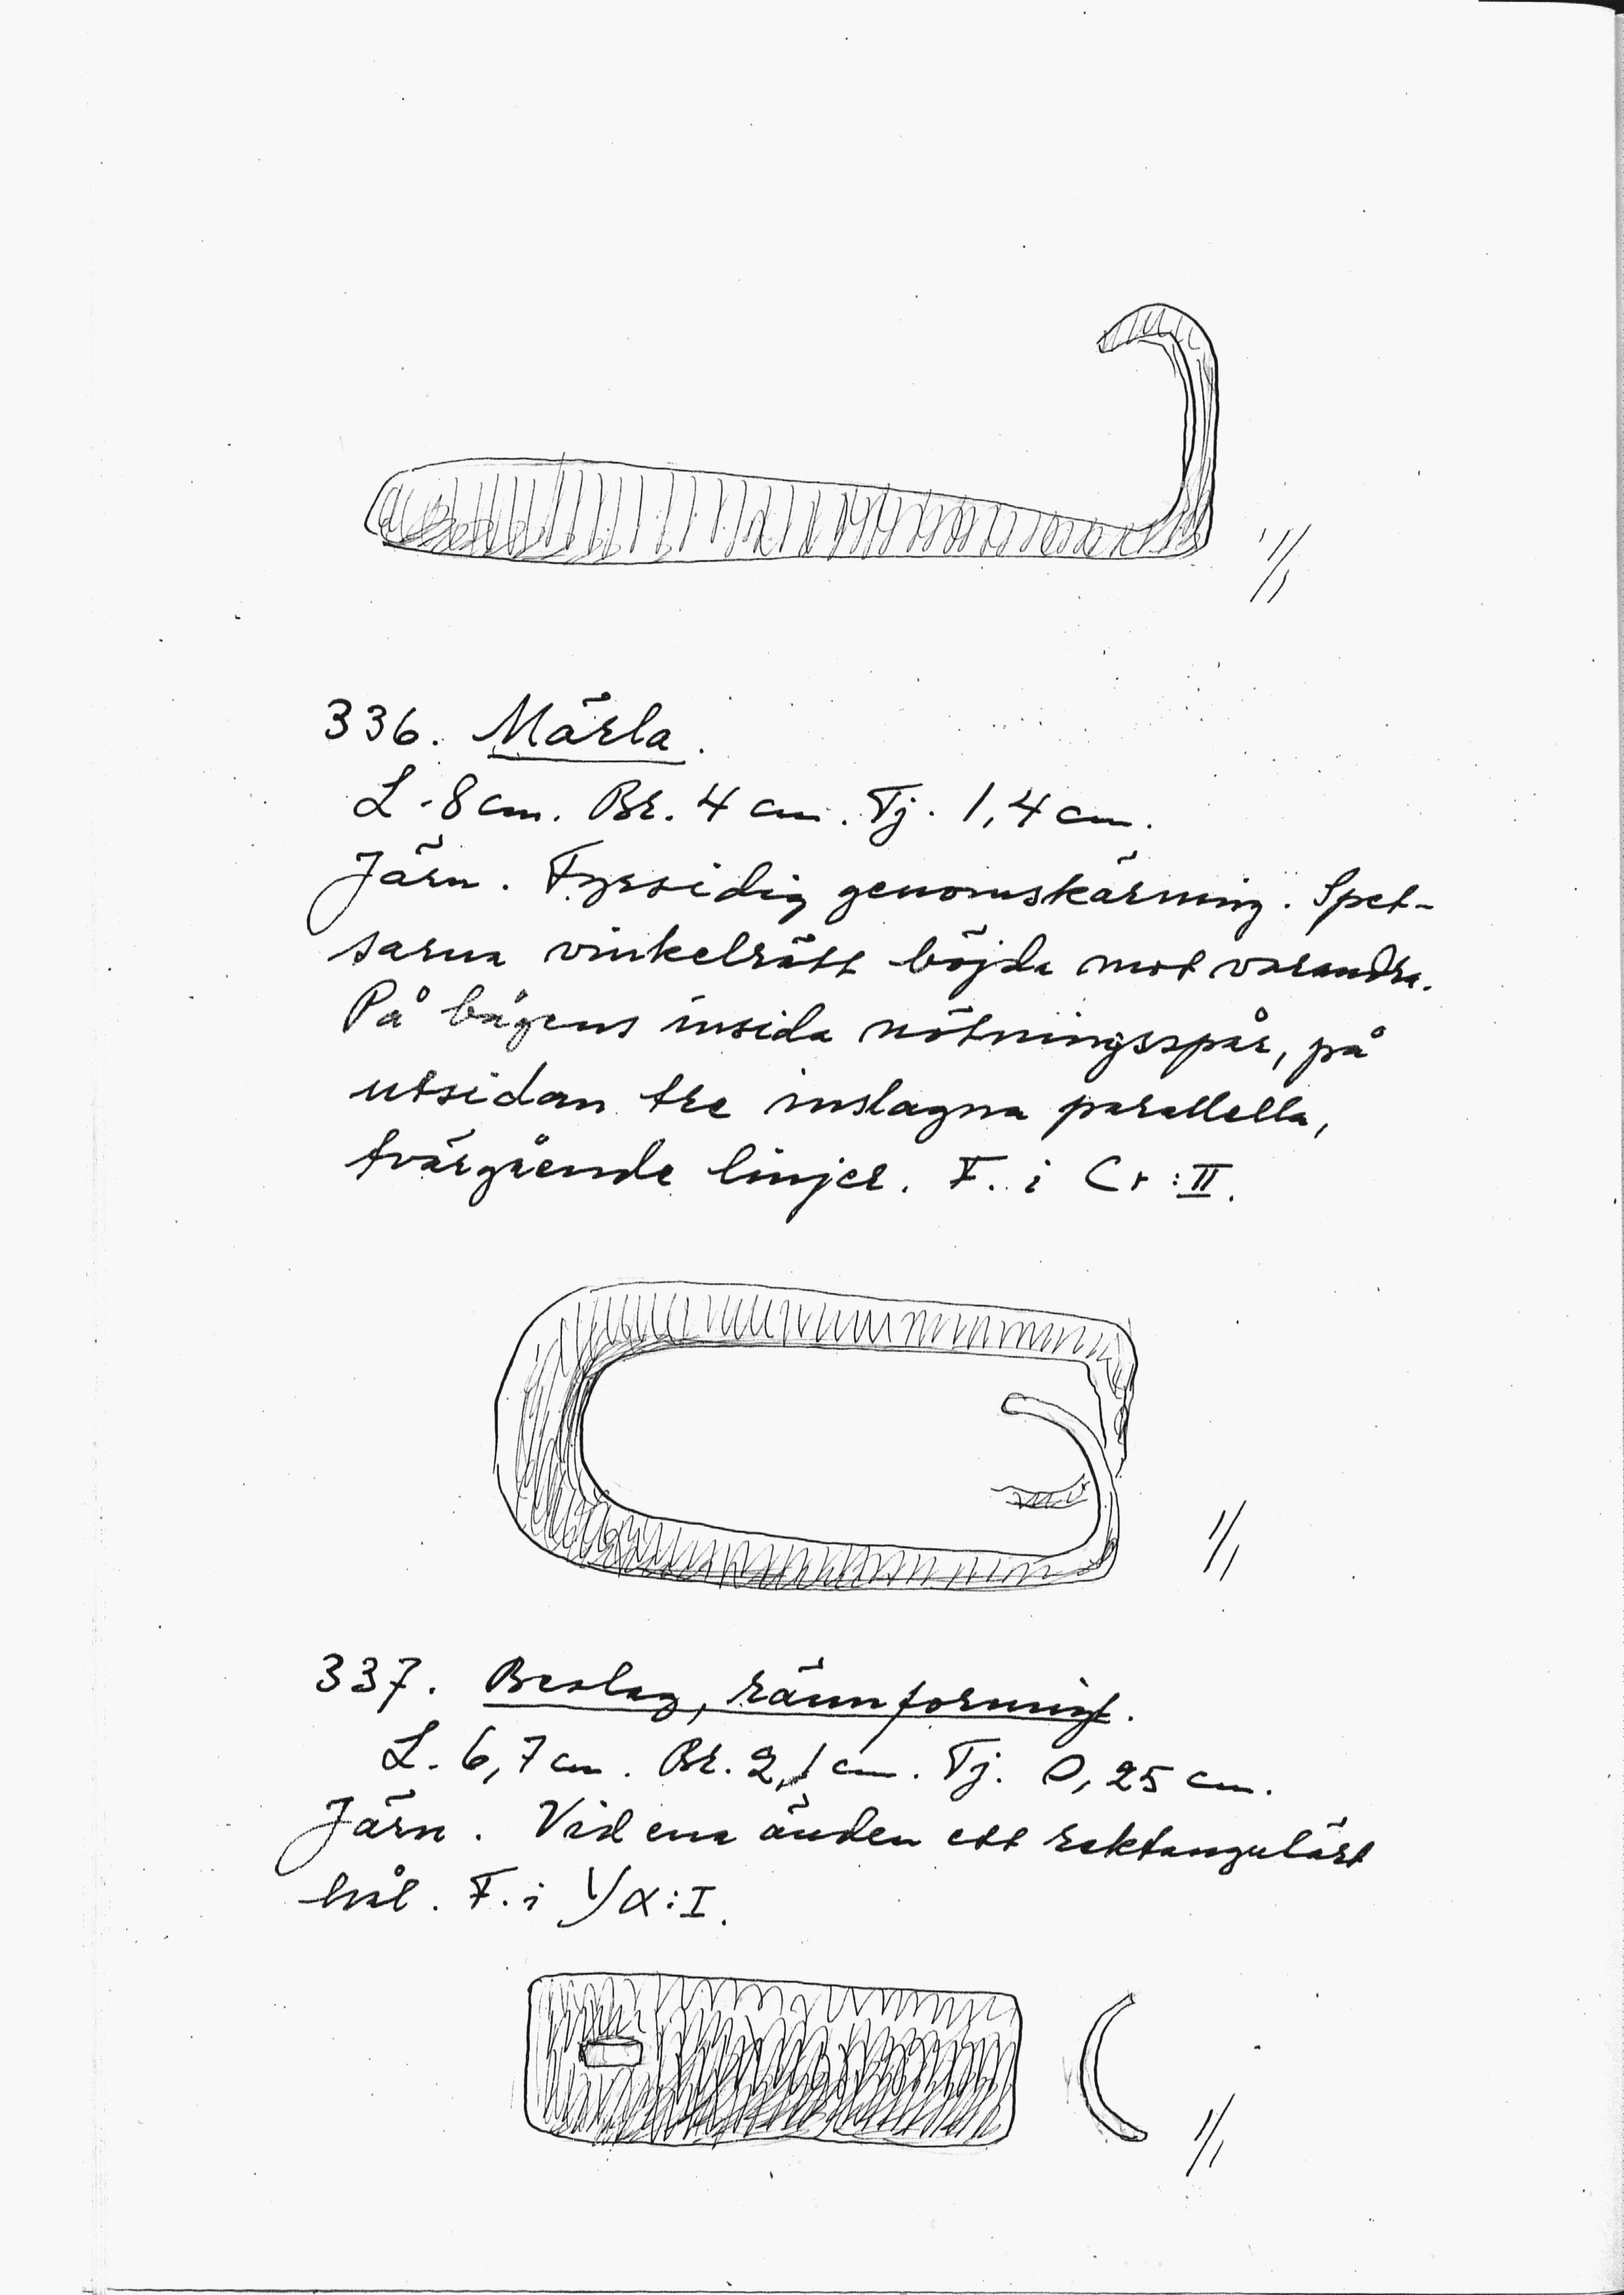 1/1
336. Märla.
L. 8 cm. Br. 4 cm. Tj. 1,4 cm.
Järn. Fyrsidig genomskärning. Spet-
sarna vinkelrätt böjda mot varandra.
På bågens insida nötningsspår, på
utsidan tre inslagna parallella,
tvärgående linjer. F. i Cr:II.
1/1
337. Beslag, rännformigt.
L. 6,7 cm. Br. 2,1 cm. Tj. 0,25 cm.
Järn. Vid ena änden ett rektangulärt
hål. F. i Yα:I.
1/1